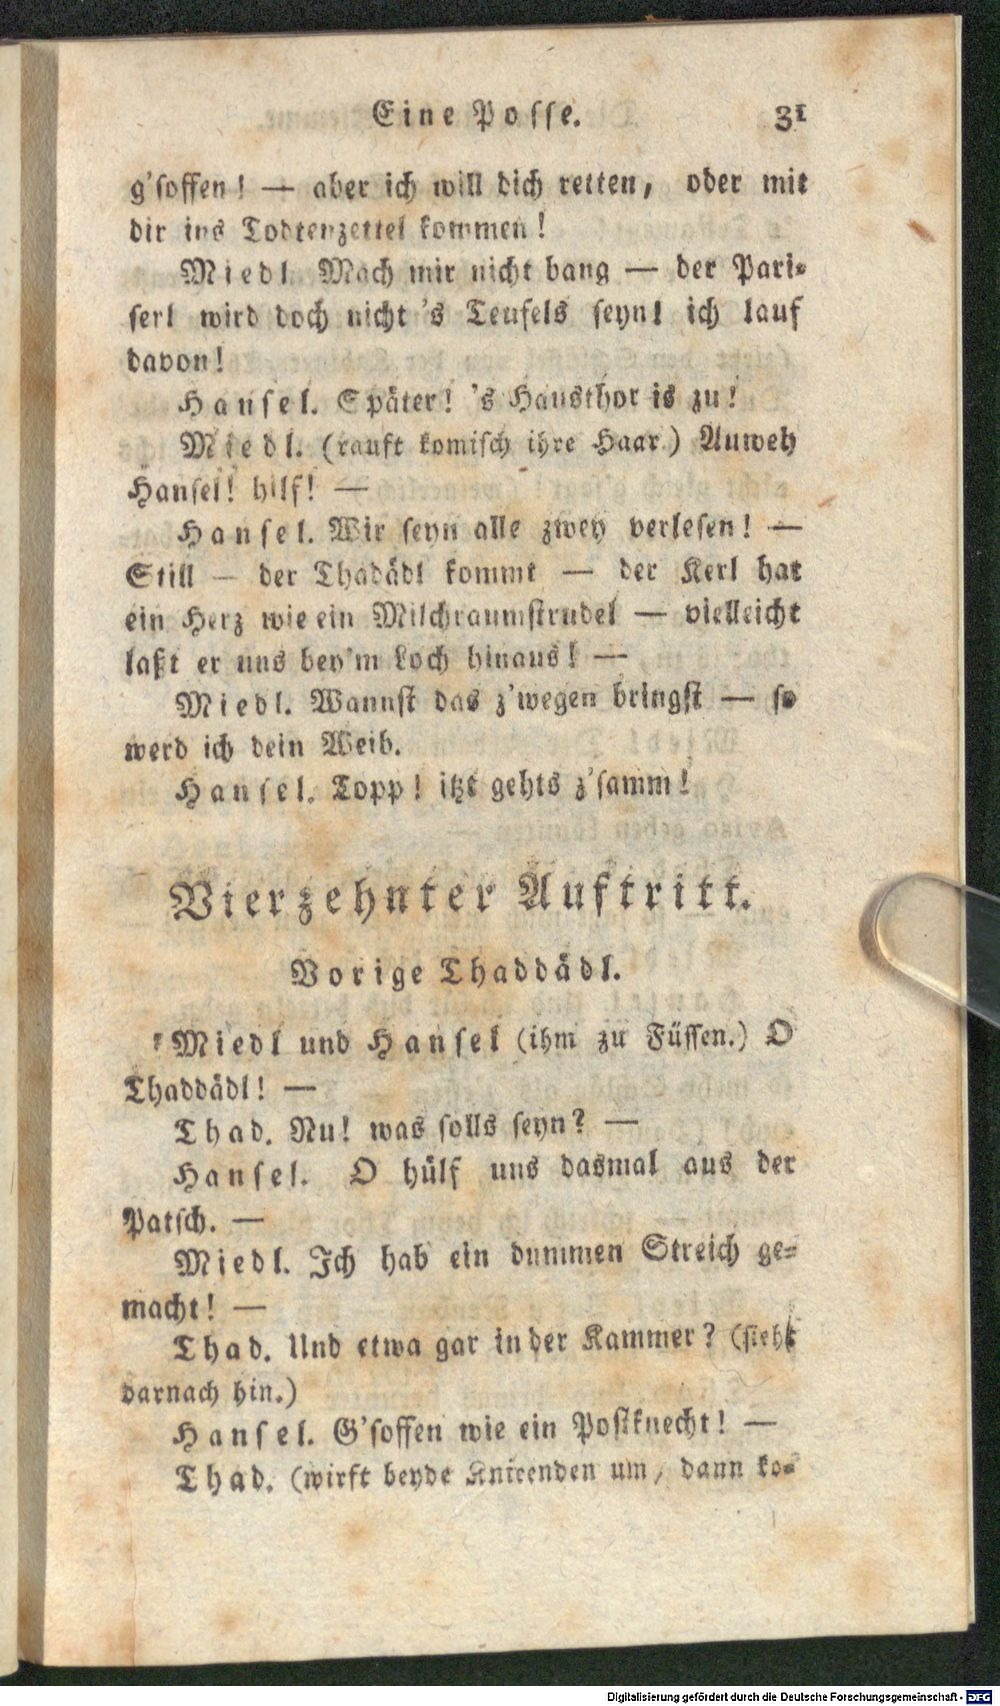 Eine Posse. 31
g'soffen! — aber ich will dich retten, oder mit
dir ins Todtenzettel kommen!
Miedl. Mach mir nicht bang — der Pari-
serl wird doch nicht 's Teufels seyn! ich lauf
davon!
Hansel. Später! 's Hausthor is zu!
Miedl. (rauft komisch ihre Haar.) Auweh
Hansel! hilf! —
Hansel. Wir seyn alle zwey verlesen! —
Still — der Thadädl kommt — der Kerl hat
ein Herz wie ein Milchraumstrudel — vielleicht
laßt er uns bey'm Loch hinaus! —
Miedl. Wannst das z'wegen bringst — so
werd ich dein Weib.
Hansel. Topp! itzt gehts z'samm!
Vierzehnter Auftritt.
Vorige Thaddädl.
Miedl und Hansel (ihm zu Füssen.) O
Thaddädl! —
Thad. Nu! was solls seyn? —
Hansel. O hülf uns dasmal aus der
Patsch. —
Miedl. Ich hab ein dummen Streich ge-
macht! —
Thad. Und etwa gar in der Kammer? (sieht
darnach hin.)
Hansel. G'soffen wie ein Postknecht! —
Thad. (wirft beyde Knieenden um, dann ko-
Digitalisierung gefördert durch die Deutsche Forschungsgemeinschaft - DFG